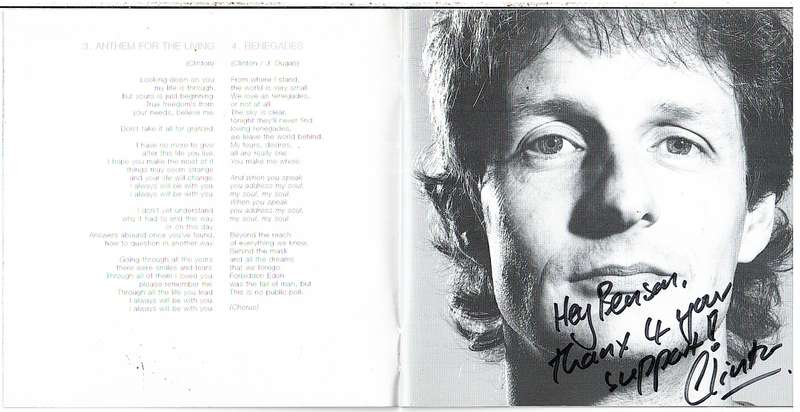 3. ANTHEM FOR THE LIVING
(Clinton)
Looking down on you
my life is through
But yours is just beginning
True freedom's from
your needs, believe me.
Don't take it all for granted
I have no more to give
after this life you live
I hope you make the most of it
things may seem strange
and your life will change.
I always will be with you
I always will be with you
I don't yet understand
why it had to end this way
or on this day
Answers abound once you've found,
how to question in another way
Going through all the years
there were smiles and tears
Through all of them I loved you
please remember me.
Through all the life you lead
I always will be with you.
I always will be with you.
4. RENEGADES
(Clinton / J. Dugan)
From where I stand,
the world is very small.
We love as renegades,
or not at all.
The sky is clear,
tonight they'll never find
loving renegades,
we leave the world behind.
My fears, desires,
all are really one
You make me whole.
And when you speak
you address my soul,
my soul, my soul.
When you speak
you address my soul,
my soul, my soul
Beyond the reach
of everything we know,
Behind the mask
and all the dreams
that we forego
Forbidden Eden
was the fall of man, but
This is no public poll.
(Chorus)
Hey Benson,
thanx 4 your
support!
Clinton